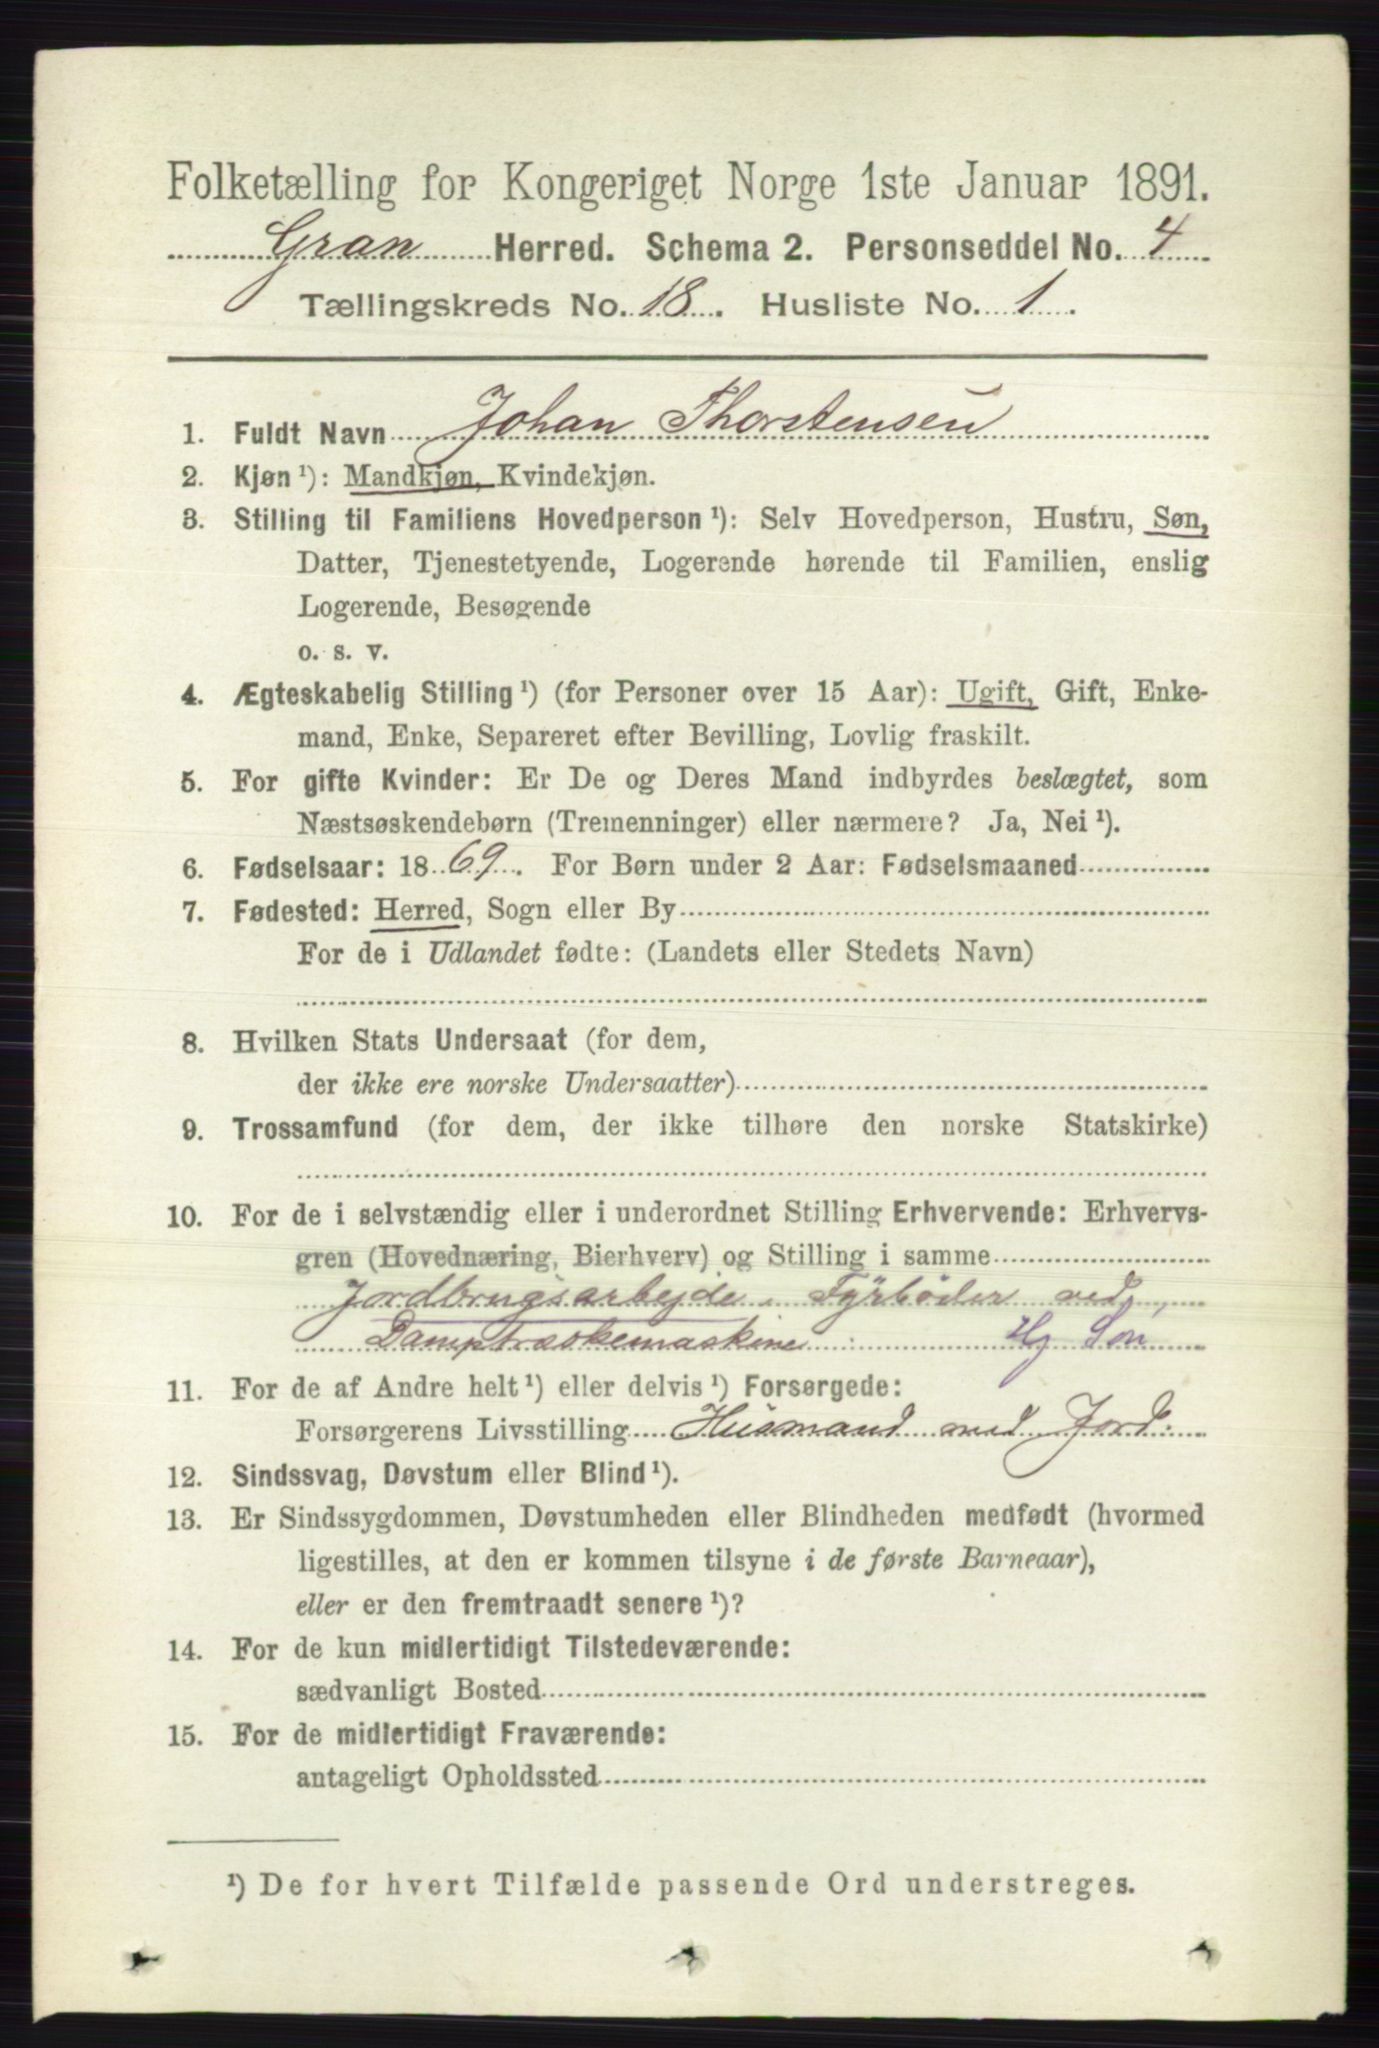 Folketælling for Kongeriget Norge 1ste Januar 1891.
Gran Herred. Schema 2. Personseddel No. 4
Tællingskreds No. 18. Husliste No. 1.
1. Fuldt Navn Johan Thorstensen
2. Kjøn ¹): Mandkjøn, Kvindekjøn.
3. Stilling til Familiens Hovedperson ¹): Selv Hovedperson, Hustru, Søn,
Datter, Tjenestetyende, Logerende hørende til Familien, enslig
Logerende, Besøgende
o. s. v.
4. Ægteskabelig Stilling ¹) (for Personer over 15 Aar): Ugift, Gift, Enke-
mand, Enke, Separeret efter Bevilling, Lovlig fraskilt.
5. For gifte Kvinder: Er De og Deres Mand indbyrdes beslægtet, som
Næstsøskendebørn (Tremenninger) eller nærmere? Ja, Nei ¹).
6. Fødselsaar: 18 69. For Børn under 2 Aar: Fødselsmaaned
7. Fødested: Herred, Sogn eller By
For de i Udlandet fødte: (Landets eller Stedets Navn)
8. Hvilken Stats Undersaat (for dem,
der ikke ere norske Undersaatter)
9. Trossamfund (for dem, der ikke tilhøre den norske Statskirke)
10. For de i selvstændig eller i underordnet Stilling Erhvervende: Erhvervs-
gren (Hovednæring, Bierhverv) og Stilling i samme
Jordbrugsarbejde, Fyrbøder ved
Damptræskemaskine Hg Søn
11. For de af Andre helt ¹) eller delvis ¹) Forsørgede:
Forsørgerens Livsstilling Husmand med Jord.
12. Sindssvag, Døvstum eller Blind ¹).
13. Er Sindssygdommen, Døvstumheden eller Blindheden medfødt (hvormed
ligestilles, at den er kommen tilsyne i de første Barneaar),
eller er den fremtraadt senere ¹)?
14. For de kun midlertidigt Tilstedeværende:
sædvanligt Bosted
15. For de midlertidigt Fraværende:
antageligt Opholdssted
¹) De for hvert Tilfælde passende Ord understreges.